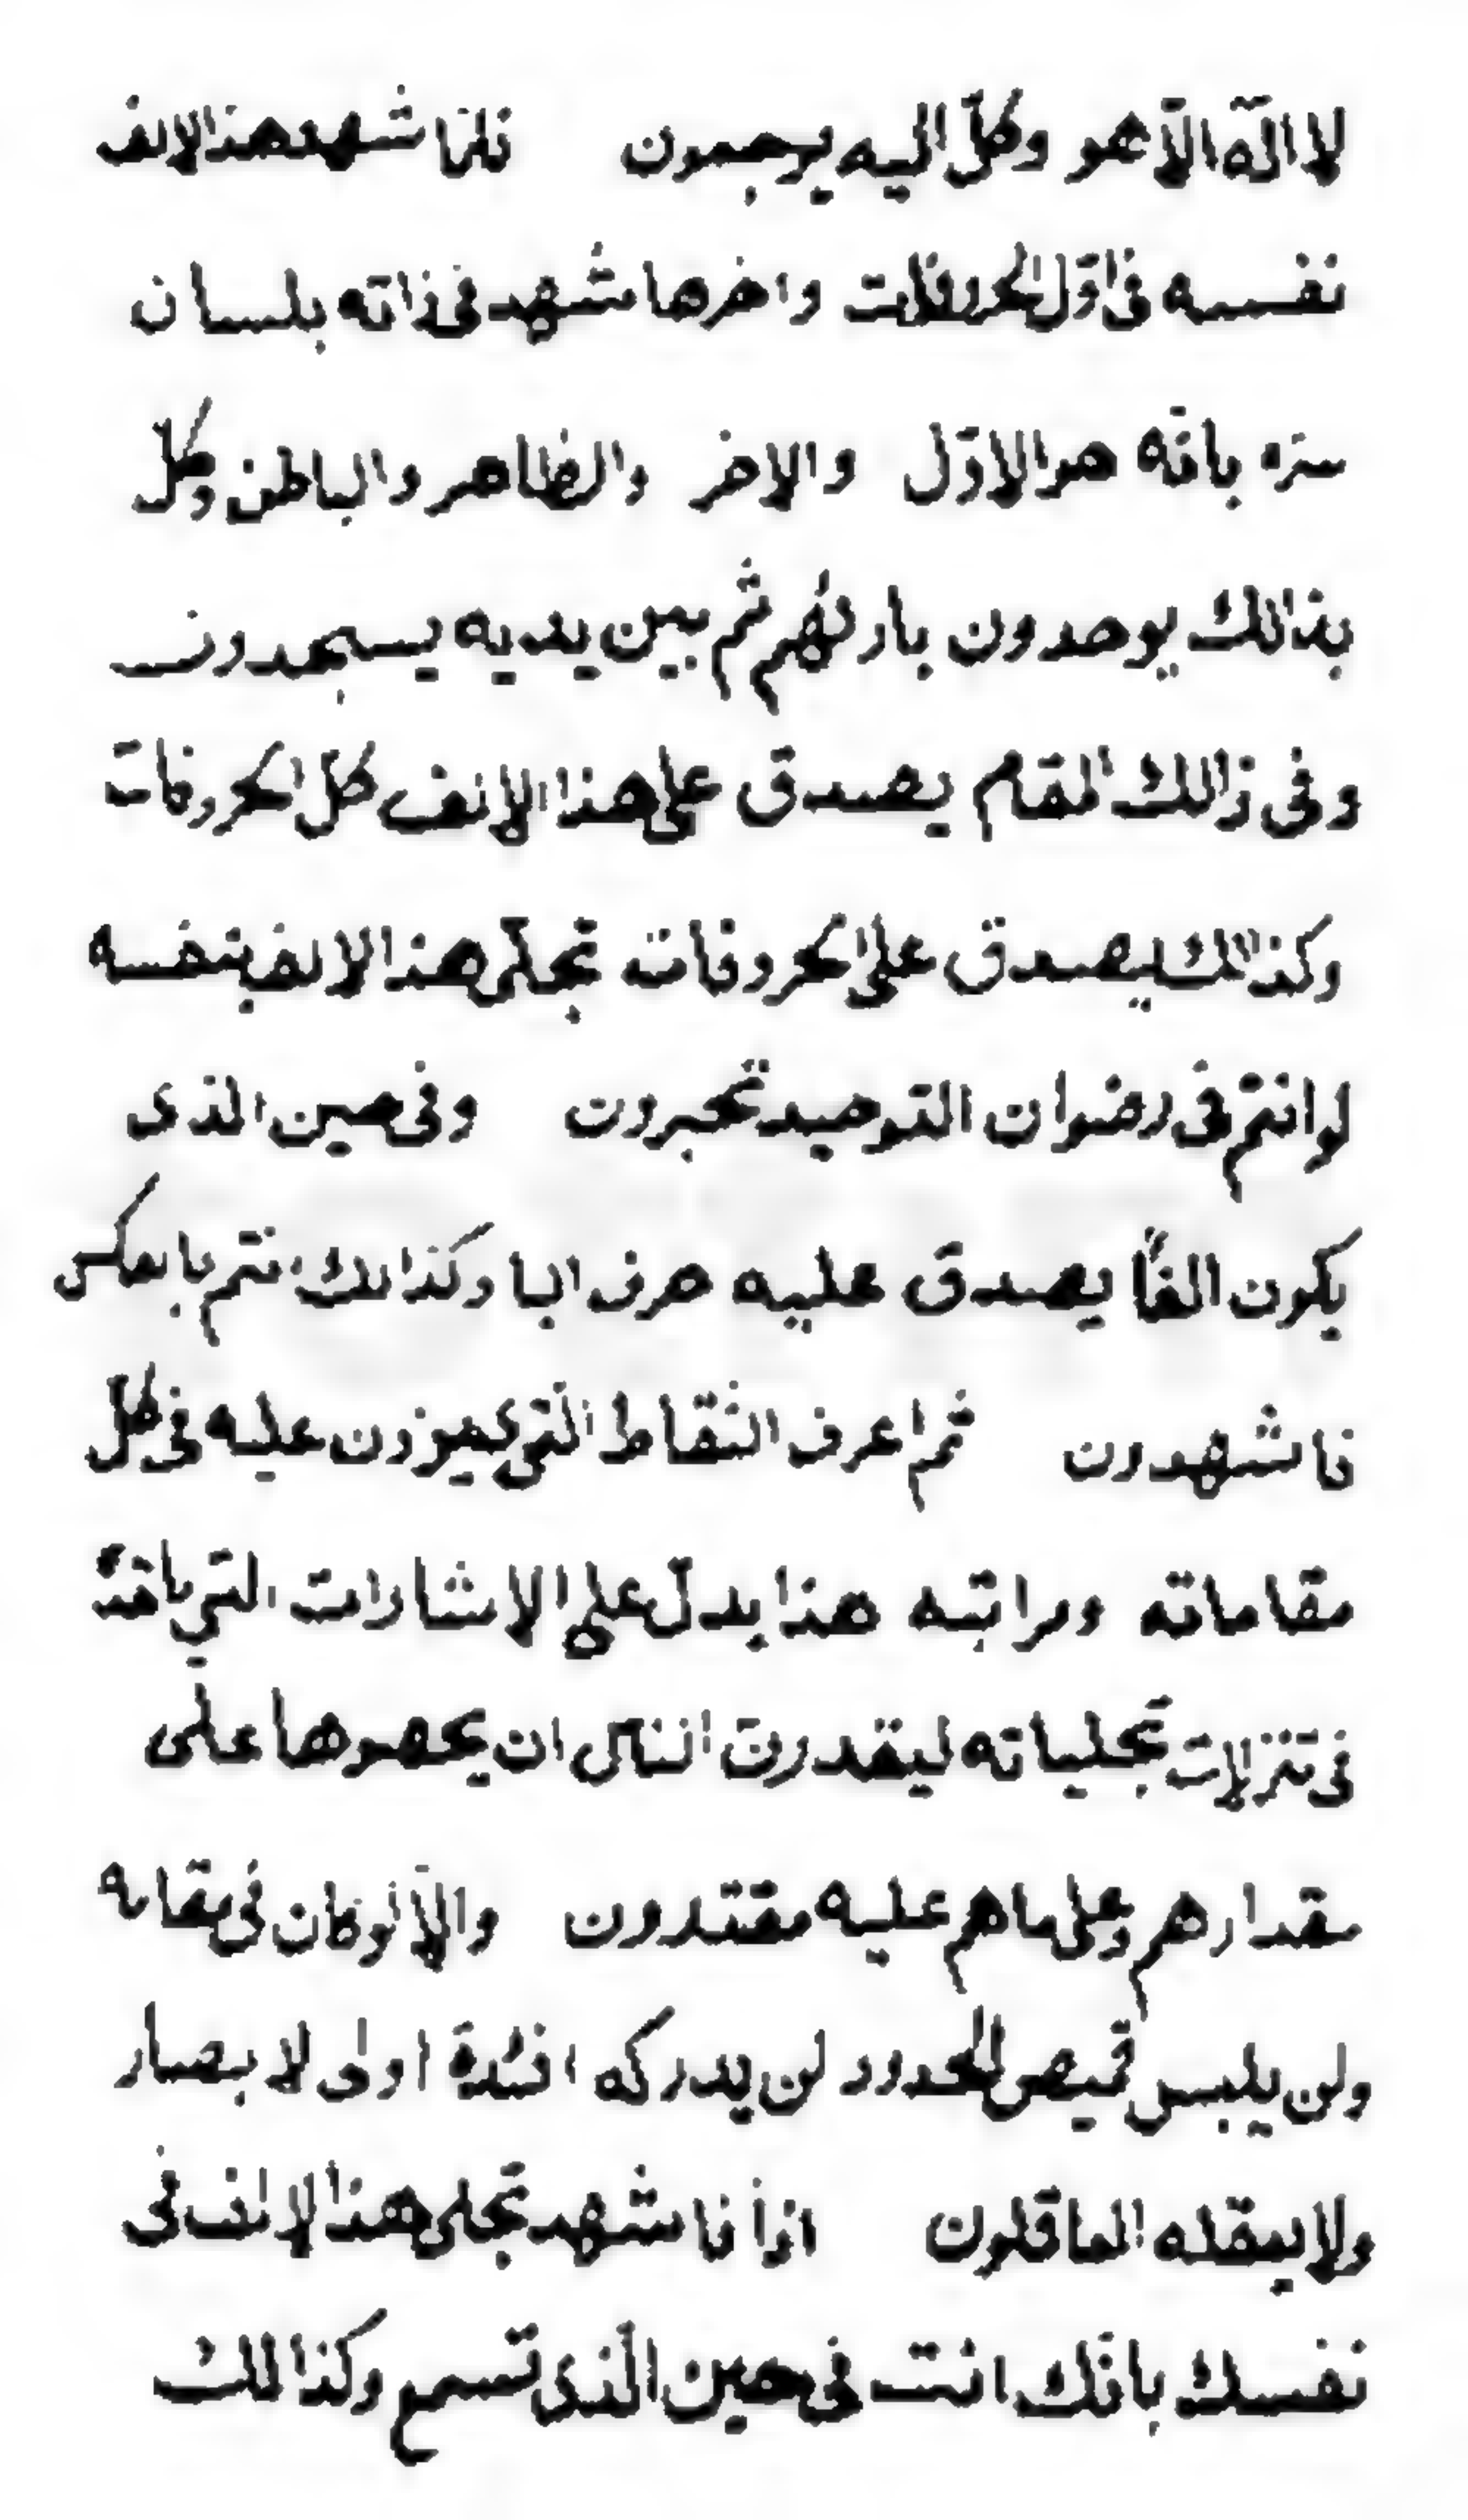 لا اله الّا هو وكلّ اليه يرجعون فلمّا شهد هذا الالف
نفسه فى اوّل الحروفات واخرها شهد فى ذاته بلسان
سرّه بانّه هو الاوّل والاخر والظاهر والباطن وكل
بذالك يوحدون بارئهم ثم بين يديه يسجدون
وفى ذالك المقام يصدق على هذا الالف كل الحروفات
وكذالك يصدق على الحروفات تجلّى هذا الالف بنفسه
لو انتم فى رضوان التوحيد تحبرون وفى حين الذى
يكون الفاً يصدق عليه حرف البا وكذالك نتم بالعكس
فاشهدون ثم اعرف النقاط التى يميزون عليه فى كلّ
مقاماته ومراتبه هذا يدلّ على الاشارات التي ياخذ
فى تنزلات تجلياته ليقدرن الناس ان يحصوها على
مقدارهم وعلى ما هم عليه مقتدرون والّا لو كان فى مقامه
ولن يلبس قميص الحدود لن يدركه افئدة اولى لابصار
ولا يعقله العاقلون اذاً فاشهد تجلى هذا لالف فى
نفسك بانّك انت فى حين الّذى تسمع وكذالك